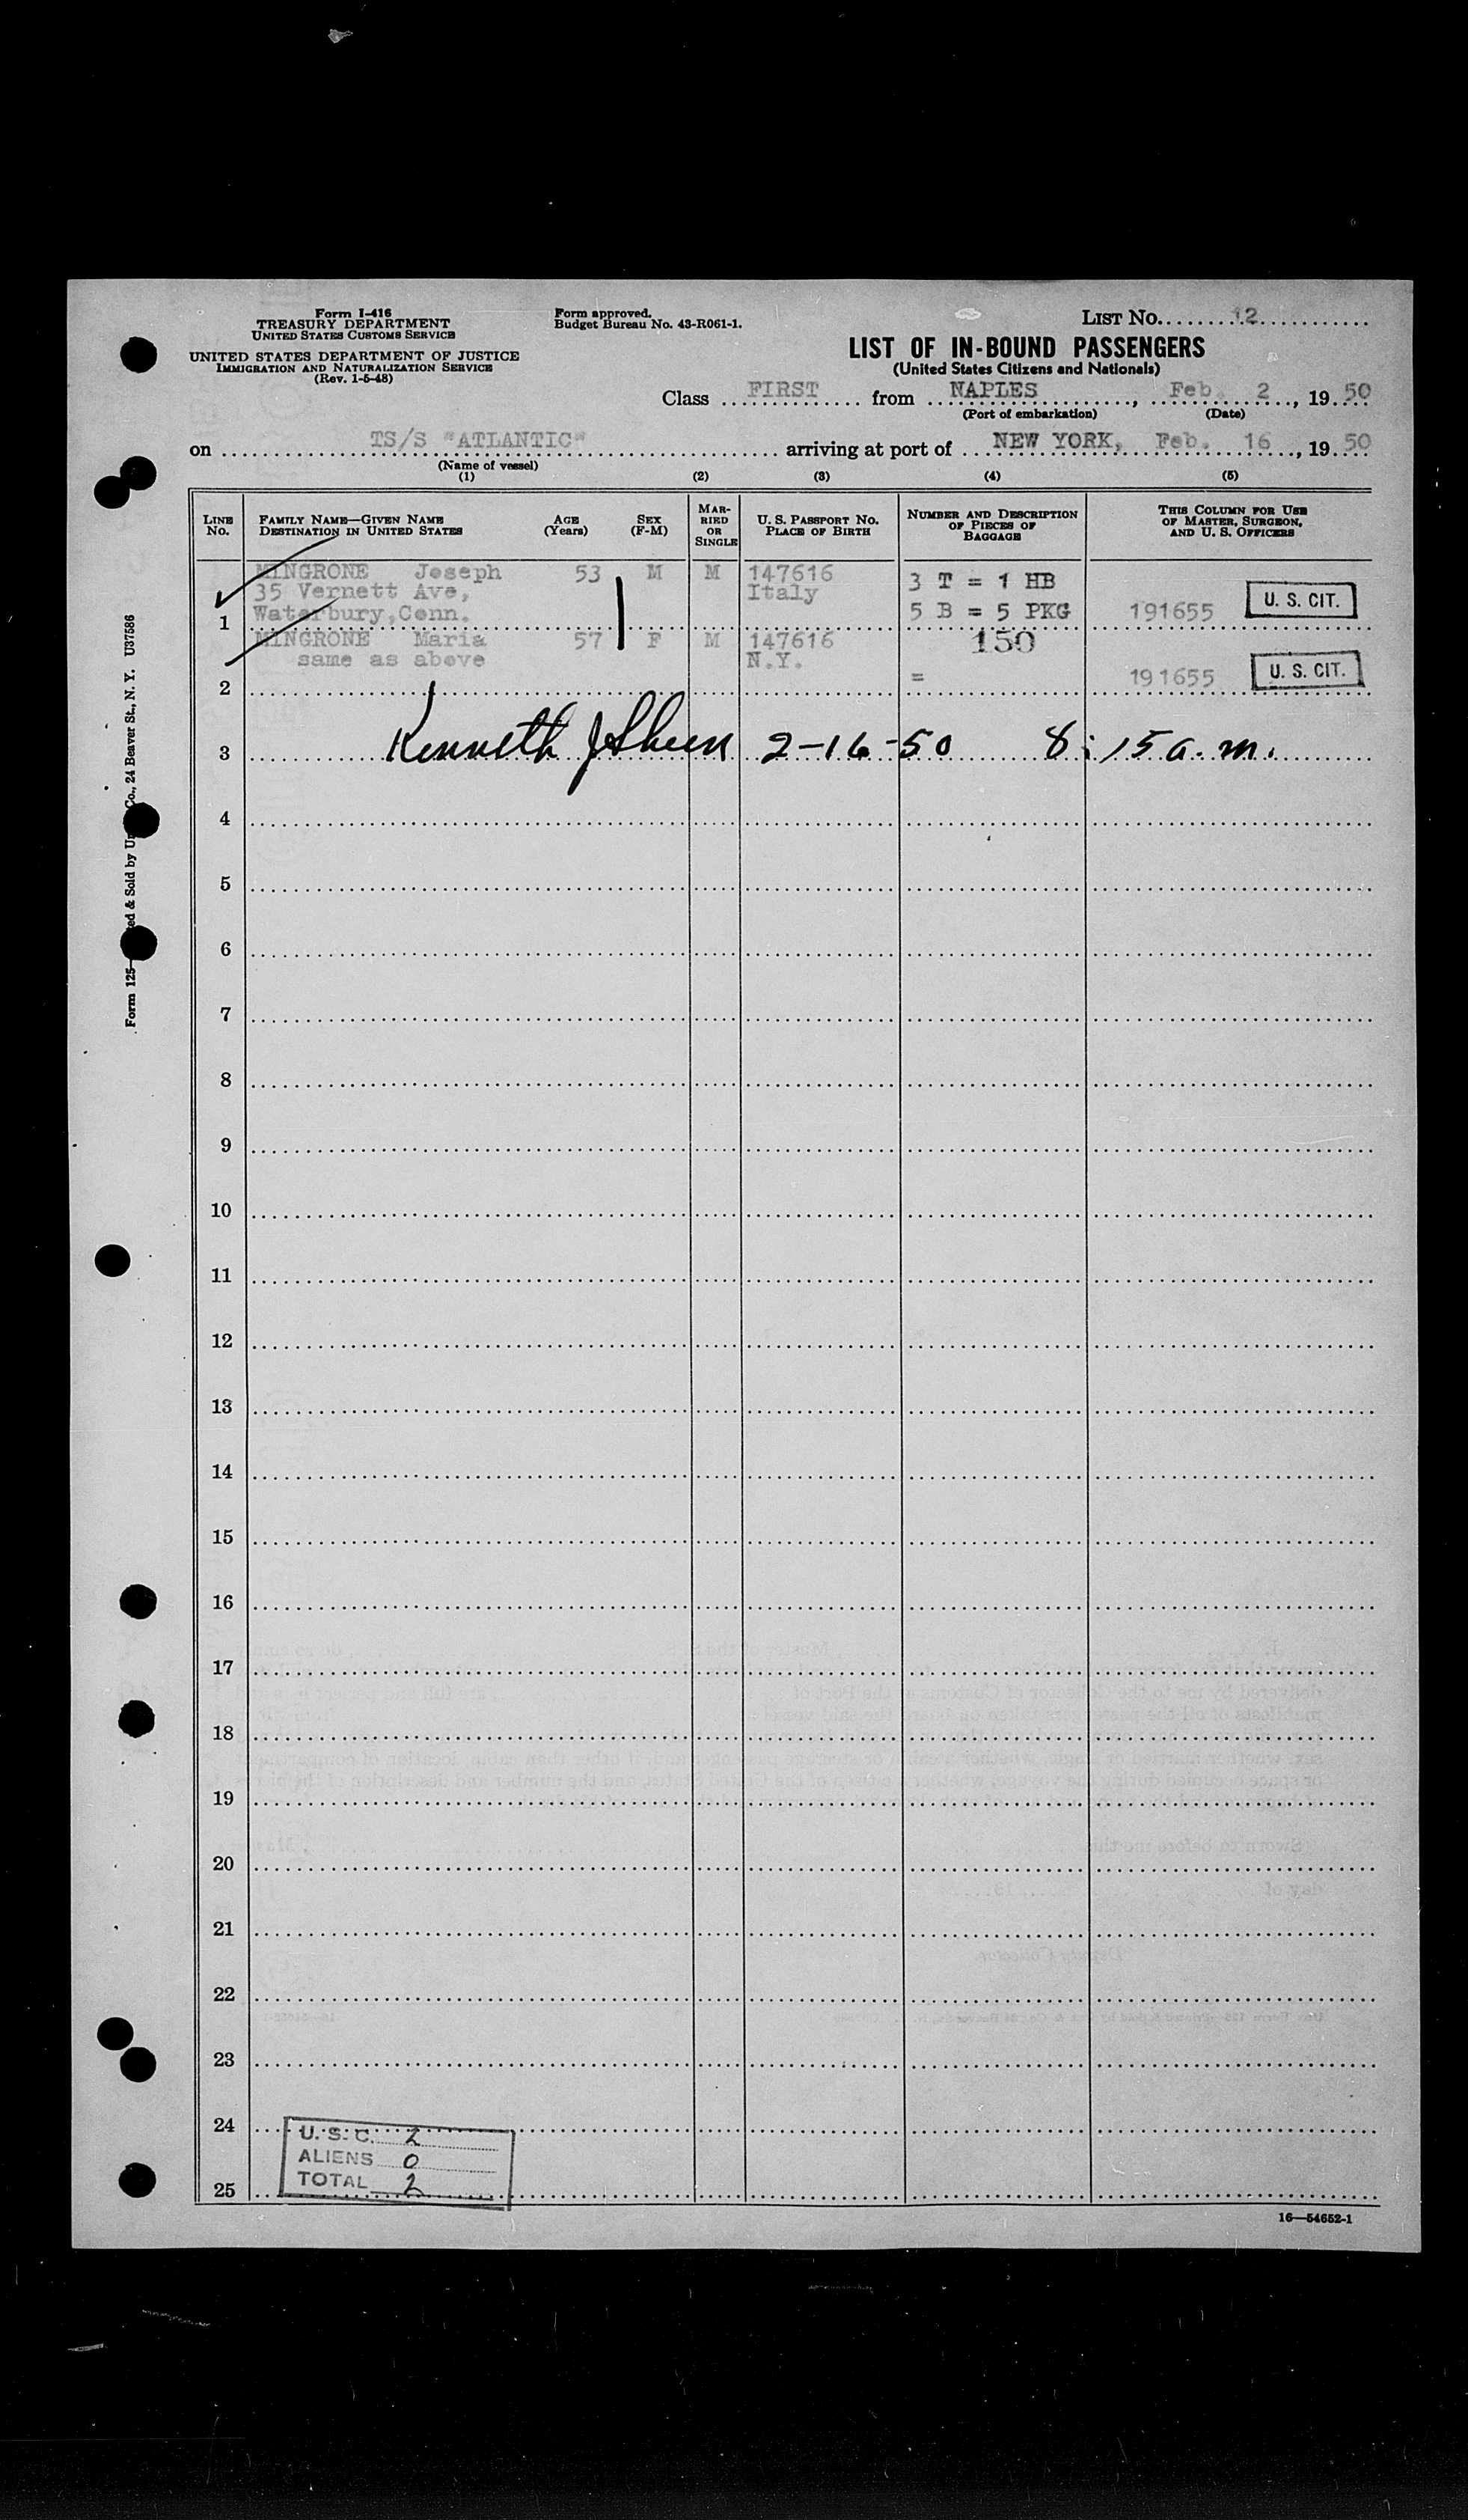 Form I-416
TREASURY DEPARTMENT
UNITED STATES CUSTOMS SERVICE
UNITED STATES DEPARTMENT OF JUSTICE
IMMIGRATION AND NATURALIZATION SERVICE
(Rev. 1-5-48)
Form approved.
Budget Bureau No. 43-R061-1.
LIST NO. 12
LIST OF IN-BOUND PASSENGERS
(United States Citizens and Nationals)
Class FIRST from NAPLES, Feb. 2, 1950
(Port of embarkation) (Date)
on TS/S "ATLANTIC" arriving at port of NEW YORK, Feb. 16, 1950
(Name of vessel)
(1) (2) (3) (4) (5)
LINE NO.
FAMILY NAME—GIVEN NAME
DESTINATION IN UNITED STATES
AGE (Years)
SEX (F-M)
MARRIED OR SINGLE
U. S. PASSPORT NO.
PLACE OF BIRTH
NUMBER AND DESCRIPTION OF PIECES OF BAGGAGE
THIS COLUMN FOR USE OF MASTER, SURGEON, AND U. S. OFFICERS
MINGRONE Joseph 53 M M 147616 3 T = 1 HB
35 Vernett Ave, Italy
1 Waterbury,Conn. 5 B = 5 PKG 191655 U. S. CIT.
MINGRONE Maria 57 F M 147616 150
same as above N.Y.
2 = 191655 U. S. CIT.
3 Kenneth J Sheen 2-16-50 8:15 a.m.
4
5
6
7
8
9
10
11
12
13
14
15
16
17
18
19
20
21
22
23
24
25
U. S. C. 2
ALIENS 0
TOTAL 2
16—54652-1
Form 125— ed & Sold by Un Co., 24 Beaver St., N. Y. U37586